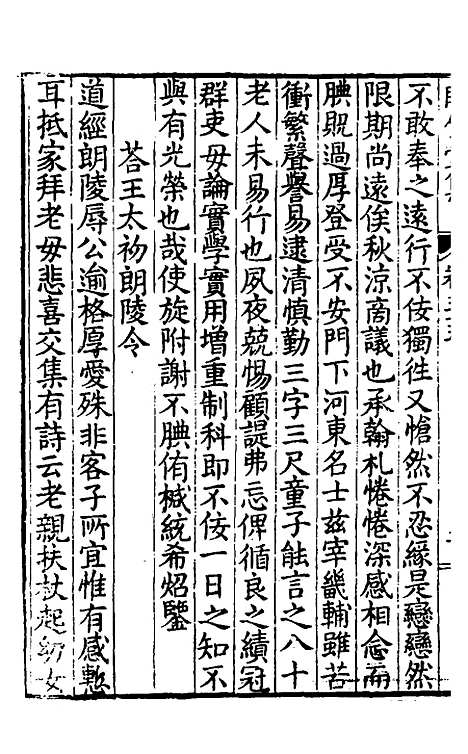 不敢奉之遠行不佞獨徃又愴然不忍緣是戀戀然
限期尚遠俟秋凉商議也承翰札惓惓深感相念而
腆貺過厚登受不安門下河東名士兹宰畿輔雖苦
衝繁聲譽易逮清慎勤三字三尺童子能言之八十
老人未易行也夙夜兢惕顧諟弗忘俾循良之績冠
群吏毋論實學實用增重制科即不佞一日之知不
與有光榮也哉使旋附謝不腆侑椷統希炤鑒
荅王太初朗陵令
道經朗陵辱公逾格厚愛殊非客子所宜惟有感慙
耳抵家拜老母悲喜交集有詩云老親扶杖起幼女